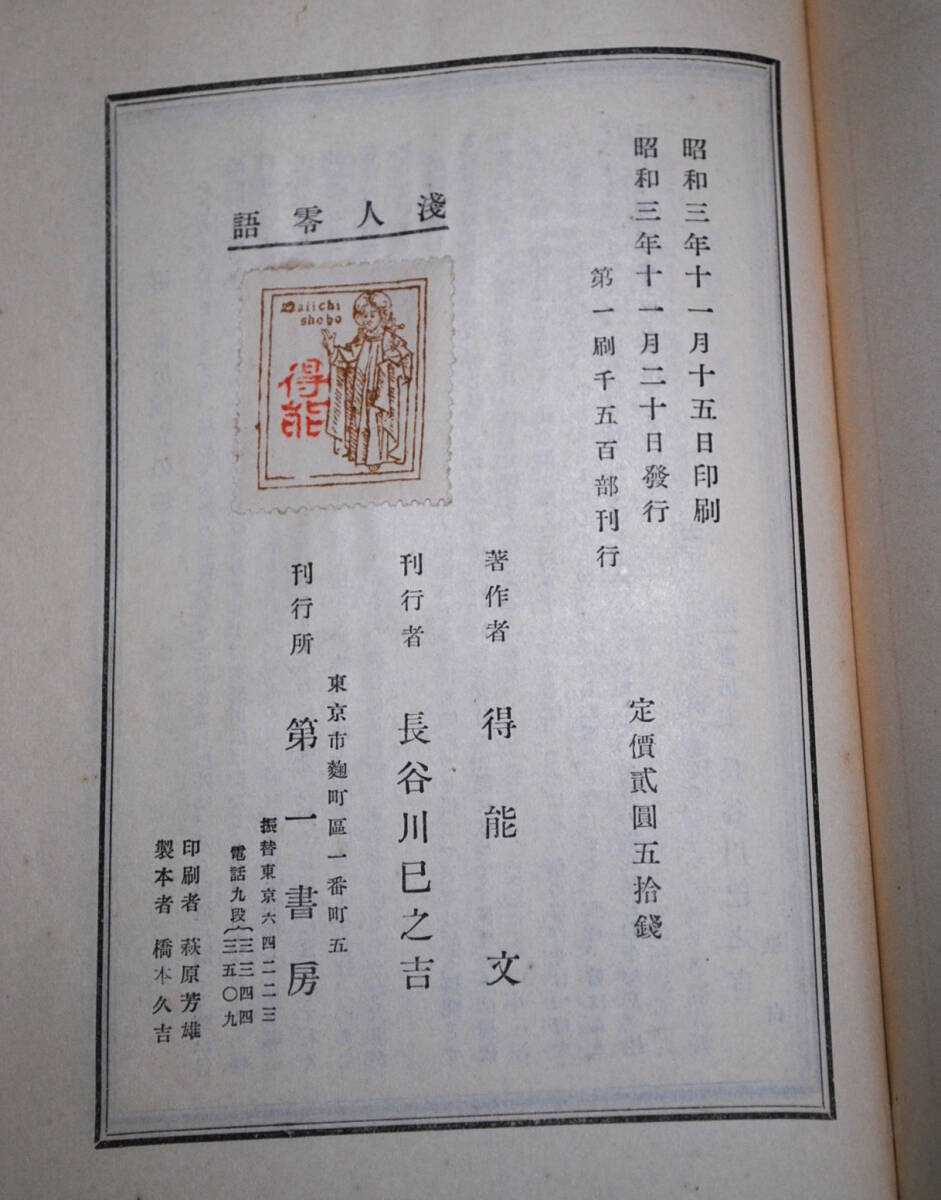 昭和三年十一月十五日印刷
昭和三年十一月二十日發行
第一刷千五百部刊行
定價貳圓五拾錢
淺人零語
Daiichi
shobo
得能
著作者 得能文
刊行者 長谷川巳之吉
東京市麴町區一番町五
刊行所 第一書房
振替東京六四二二三
電話九段{三三四四
三五〇九
印刷者 萩原芳雄
製本者 橋本久吉